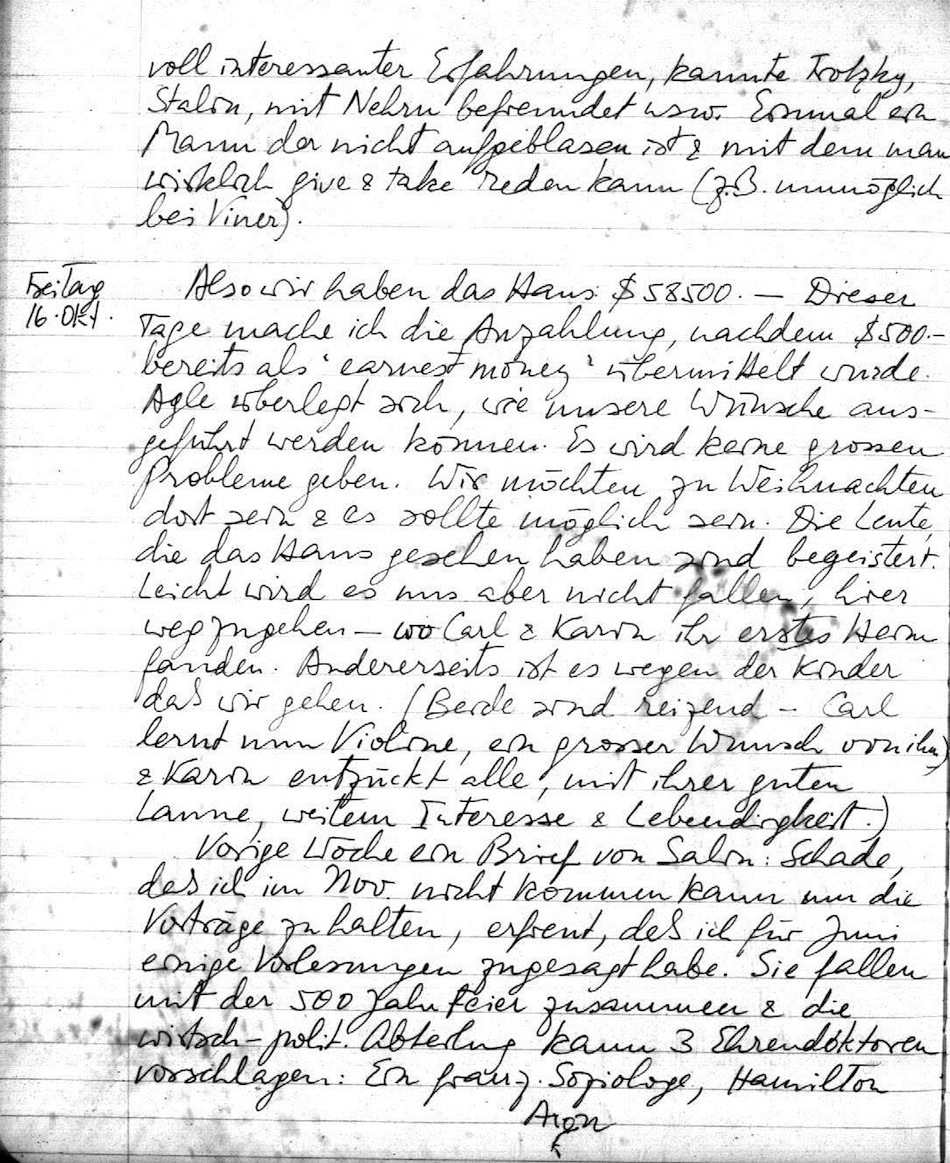 voll interessanter Erfahrungen, kannte Trotzky,
Stalin, mit Nehru befreundet usw. Einmal ein
Mann der nicht aufgeblasen ist & mit dem man
wirklich give & take reden kann (z.B. unmöglich
bei Viner).
Freitag
16. Okt.
Also wir haben das Haus: $58500.— Dieser
Tage mache ich die Anzahlung, nachdem $500.–
bereits als "earnest money" übermittelt wurde.
Agle überlegt sich, wie unsere Wünsche aus-
geführt werden können. Es wird keine grossen
Probleme geben. Wir möchten zu Weihnachten
dort sein & es sollte möglich sein. Die Leute,
die das Haus gesehen haben sind begeistert.
Leicht wird es uns aber nicht fallen, hier
wegzugehen — wo Carl & Karin ihr erstes Heim
fanden. Andererseits ist es wegen der Kinder
daß wir gehen. (Beide sind reizend – Carl
lernt nun Violine, ein grosser Wunsch von ihm,
& Karin entzückt alle, mit ihrer guten
Laune, weitem Interesse & Lebendigkeit.)
Vorige Woche ein Brief von Salin: Schade,
daß ich im Nov. nicht kommen kann um die
Vorträge zu halten, erfreut, daß ich für Juni
einige Vorlesungen zugesagt habe. Sie fallen
mit der 500 Jahr Feier zusammen & die
wirtsch-polit. Abteilung kann 3 Ehrendoktoren
vorschlagen: Ein franz. Soziologe, Hamilton
Aron